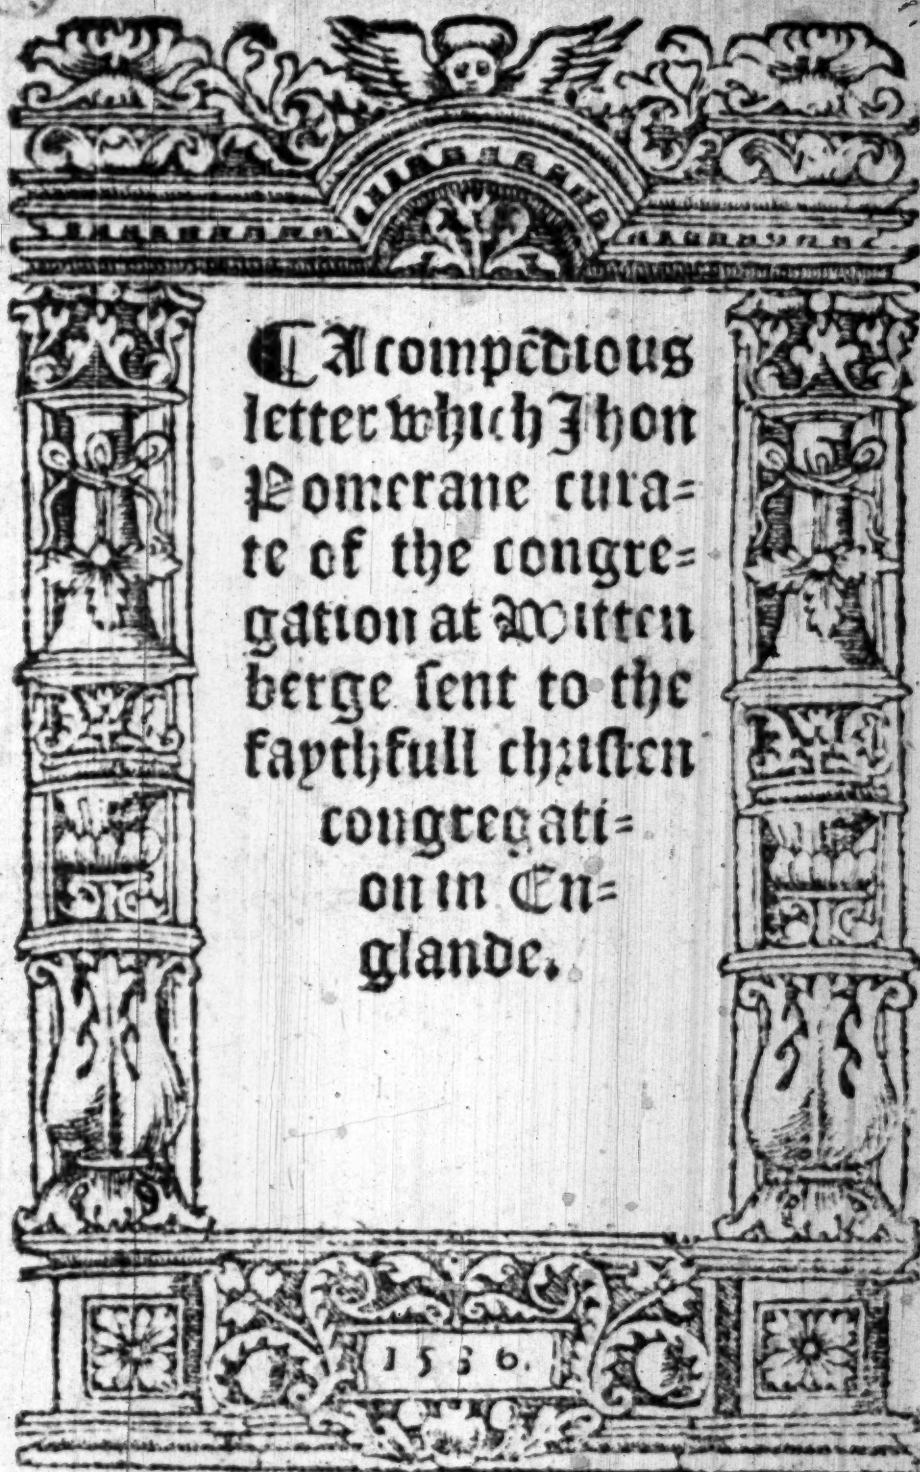 ¶ A compēdious
letter which Jhon
Pomerane cura=
te of the congre=
gation at Witten
berge sent to the
faythfull christen
congregati=
on in En=
glande.
1536.